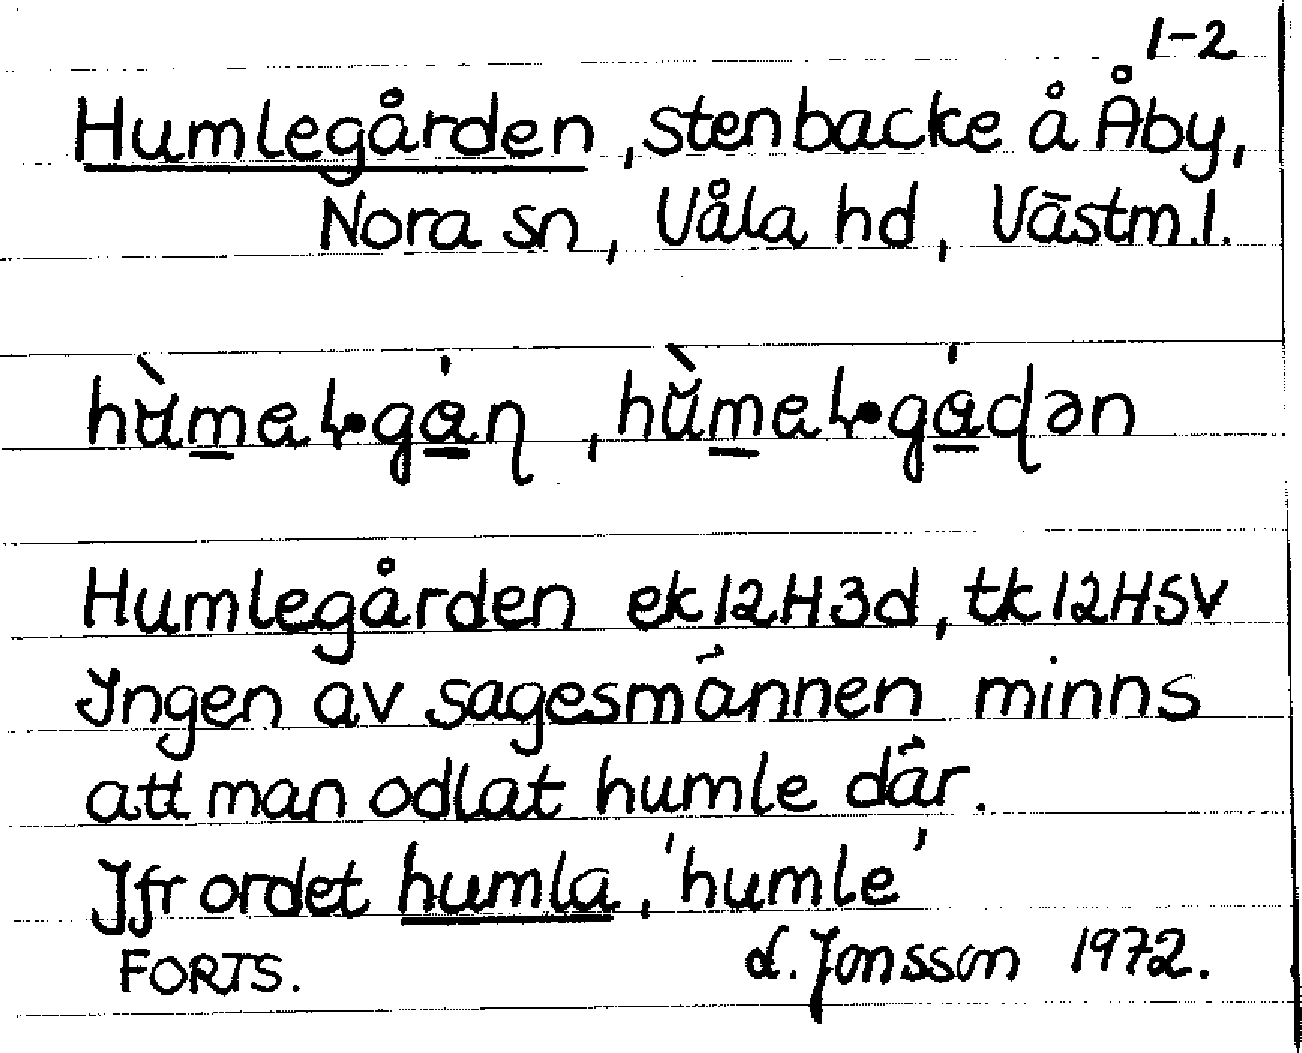 1-2
Humlegården, stenbacke å Åby,
Nora sn, Våla hd, Västm.l.
Humlegården ek12H3d, tk12HSV
Ingen av sagesmännen minns
att man odlat humle där.
Jfr ordet humla, 'humle'
FORTS. L. Jonsson 1972.